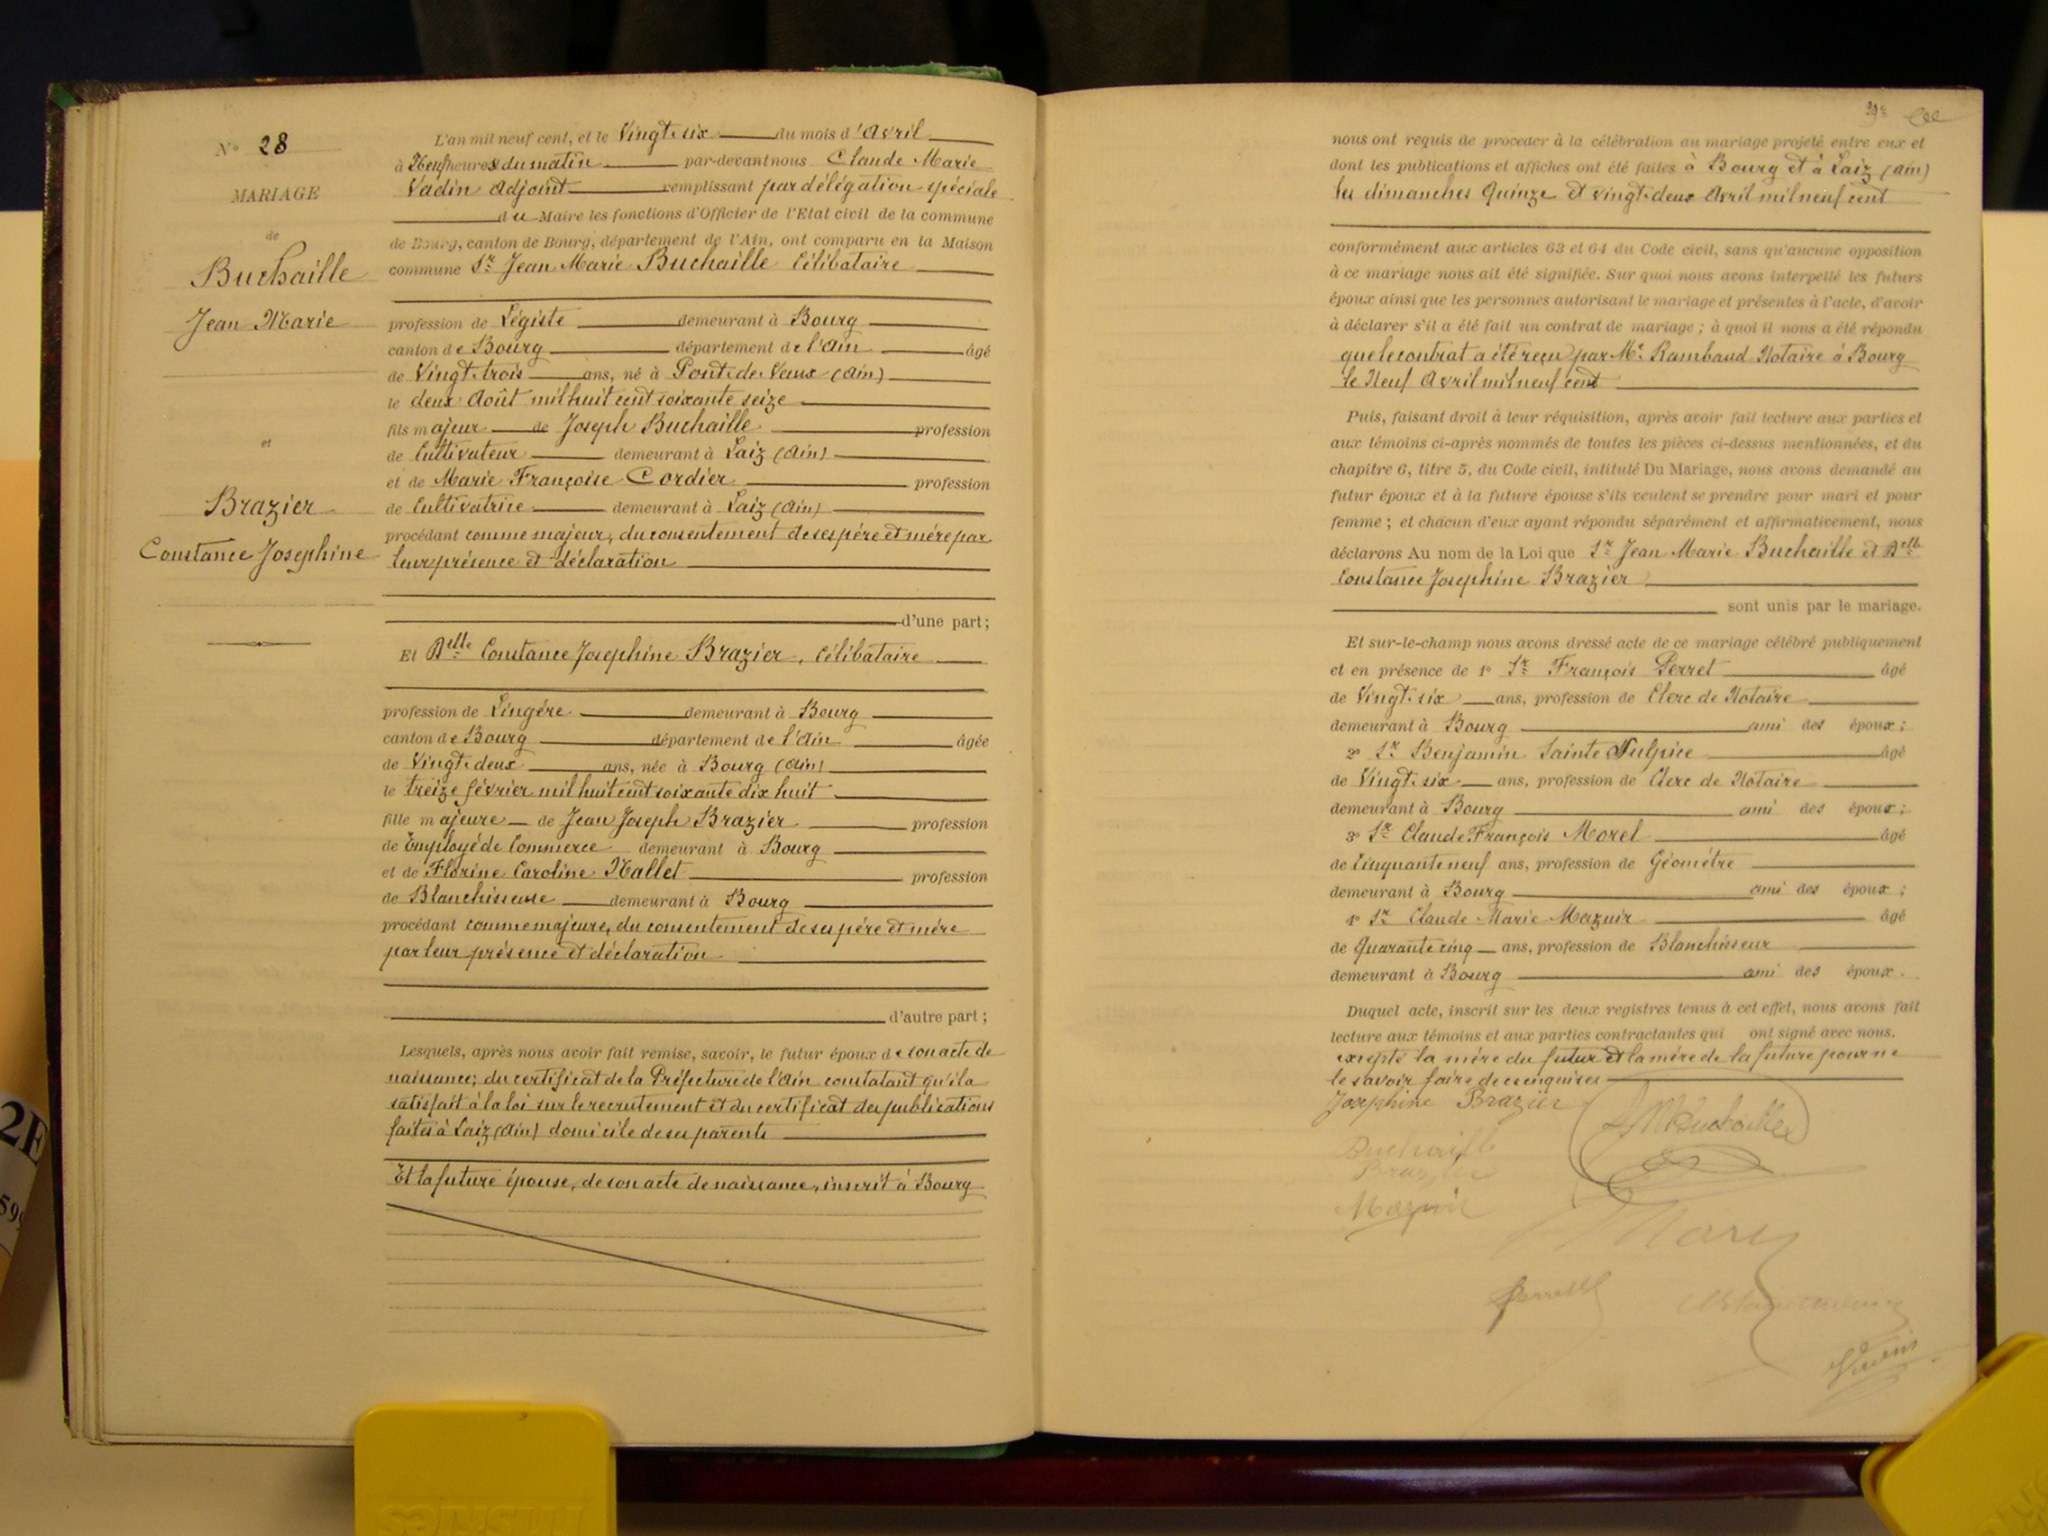 N° 28
MARIAGE
de
Buchaille
Jean Marie
et
Brazier
Constance Josephine
L'an mil neuf cent, et le Vingt six du mois d'Avril
à Neuf heures du matin par-devant nous Claude Marie
Vadin Adjoint remplissant par délégation spéciale
du Maire les fonctions d'Officier de l'Etat civil de la commune
de Bourg, canton de Bourg, département de l'Ain, ont comparu en la Maison
commune Sr Jean Marie Buchaille Célibataire
profession de Légiste demeurant à Bourg
canton de Bourg département de l'Ain âgé
de Vingt trois ans, né à Pont de Vaux (Ain)
le deux Août mil huit cent soixante seize
fils majeur de Joseph Buchaille profession
de Cultivateur demeurant à Laiz (Ain)
et de Marie Françoise Cordier profession
de Cultivatrice demeurant à Laiz (Ain)
procédant comme majeur, du consentement de ses père et mère par
leur présence et déclaration
d'une part;
Et Delle Constance Josephine Brazier, Célibataire
profession de Lingère demeurant à Bourg
canton de Bourg département de l'Ain âgée
de Vingt deux ans, née à Bourg (Ain)
le treize février mil huit cent soixante dix huit
fille majeure de Jean Joseph Brazier profession
de Employé de Commerce demeurant à Bourg
et de Florine Caroline Mallet profession
de Blanchisseuse demeurant à Bourg
procédant comme majeure, du consentement de ses père et mère
par leur présence et déclaration
d'autre part;
Lesquels, après nous avoir fait remise, savoir, le futur époux de son acte de
naissance; du certificat de la Préfecture de l'Ain constatant qu'il a
satisfait à la loi sur le recrutement et du certificat des publications
faites à Laiz (Ain) domicile de ses parents
Et la future épouse, de son acte de naissance, inscrit à Bourg
nous ont requis de procéder à la célébration du mariage projeté entre eux et
dont les publications et affiches ont été faites à Bourg et à Laiz (Ain)
les dimanches Quinze et vingt deux Avril mil neuf cent
conformément aux articles 63 et 64 du Code civil, sans qu'aucune opposition
à ce mariage nous ait été signifiée. Sur quoi nous avons interpellé les futurs
époux ainsi que les personnes autorisant le mariage et présentes à l'acte, d'avoir
à déclarer s'il a été fait un contrat de mariage; à quoi il nous a été répondu
que le contrat a été reçu par Me Rambaud Notaire à Bourg
le Neuf Avril mil neuf cent
Puis, faisant droit à leur réquisition, après avoir fait lecture aux parties et
aux témoins ci-après nommés de toutes les pièces ci-dessus mentionnées, et du
chapitre 6, titre 5, du Code civil, intitulé Du Mariage, nous avons demandé au
futur époux et à la future épouse s'ils veulent se prendre pour mari et pour
femme; et chacun d'eux ayant répondu séparément et affirmativement, nous
déclarons Au nom de la Loi que Sr Jean Marie Buchaille et Delle
Constance Josephine Brazier
sont unis par le mariage.
Et sur-le-champ nous avons dressé acte de ce mariage célébré publiquement
et en présence de 1° Sr François Perret âgé
de Vingt six ans, profession de Clerc de Notaire
demeurant à Bourg ami des époux;
2° Sr Benjamin Sainte Sulpice âgé
de Vingt six ans, profession de Clerc de Notaire
demeurant à Bourg ami des époux;
3° Sr Claude François Morel âgé
de Cinquante neuf ans, profession de Géomètre
demeurant à Bourg ami des époux;
4° Sr Claude Marie Mazuir âgé
de Quarante cinq ans, profession de Blanchisseur
demeurant à Bourg ami des époux.
Duquel acte, inscrit sur les deux registres tenus à cet effet, nous avons fait
lecture aux témoins et aux parties contractantes qui ont signé avec nous.
excepté la mère du futur et la mère de la future pour ne
le savoir faire de ce enquises
Josephine Brazier
JM Buchaille
Buchaille
Brazier
Mazuir
Morel
Perret
Vadin